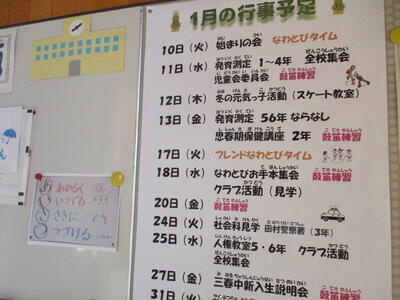 1月の行事予定
10日（火） 始まりの会 なわとびタイム
11日（水） 発育測定 1～4年 全校集会
児童会委員会 鼓笛練習
12日（木） 冬の元気っ子活動（スケート教室）
13日（金） 発育測定 56年 ならなし
思春期保健講座 2年 鼓笛練習
17日（火） フレンドなわとびタイム
18日（水） なわとびお手本集会 鼓笛練習
クラブ活動（見学）
20日（金） 鼓笛練習
24日（火） 社会科見学 田村警察署（3年）
25日（水） 人権教室5・6年 クラブ活動
全校集会
27日（金） 三春中新入生説明会
31日（火）
あかるく
いつでも
さきに
つづける